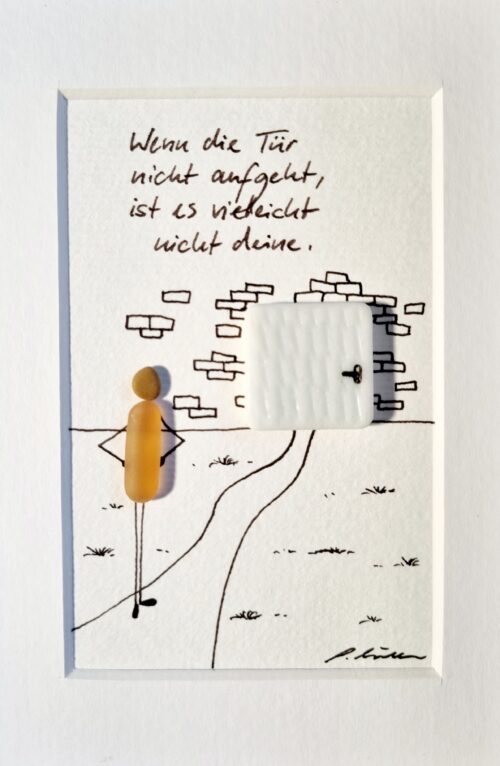 Wenn die Tür
nicht aufgeht,
ist es vieleicht
nicht deine.